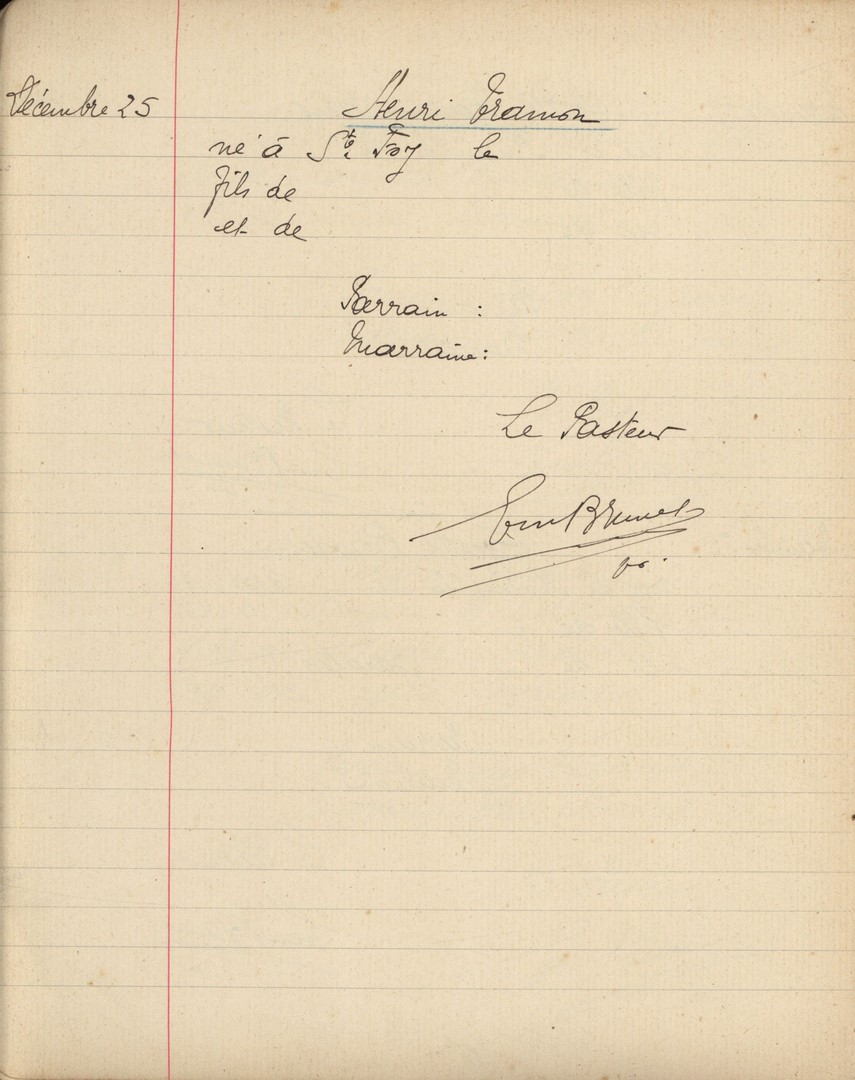 Décembre 25
Henri Tramon
né à Ste Foy le
fils de
et de
Parrain :
Marraine :
Le Pasteur
Em Brunet
ps.